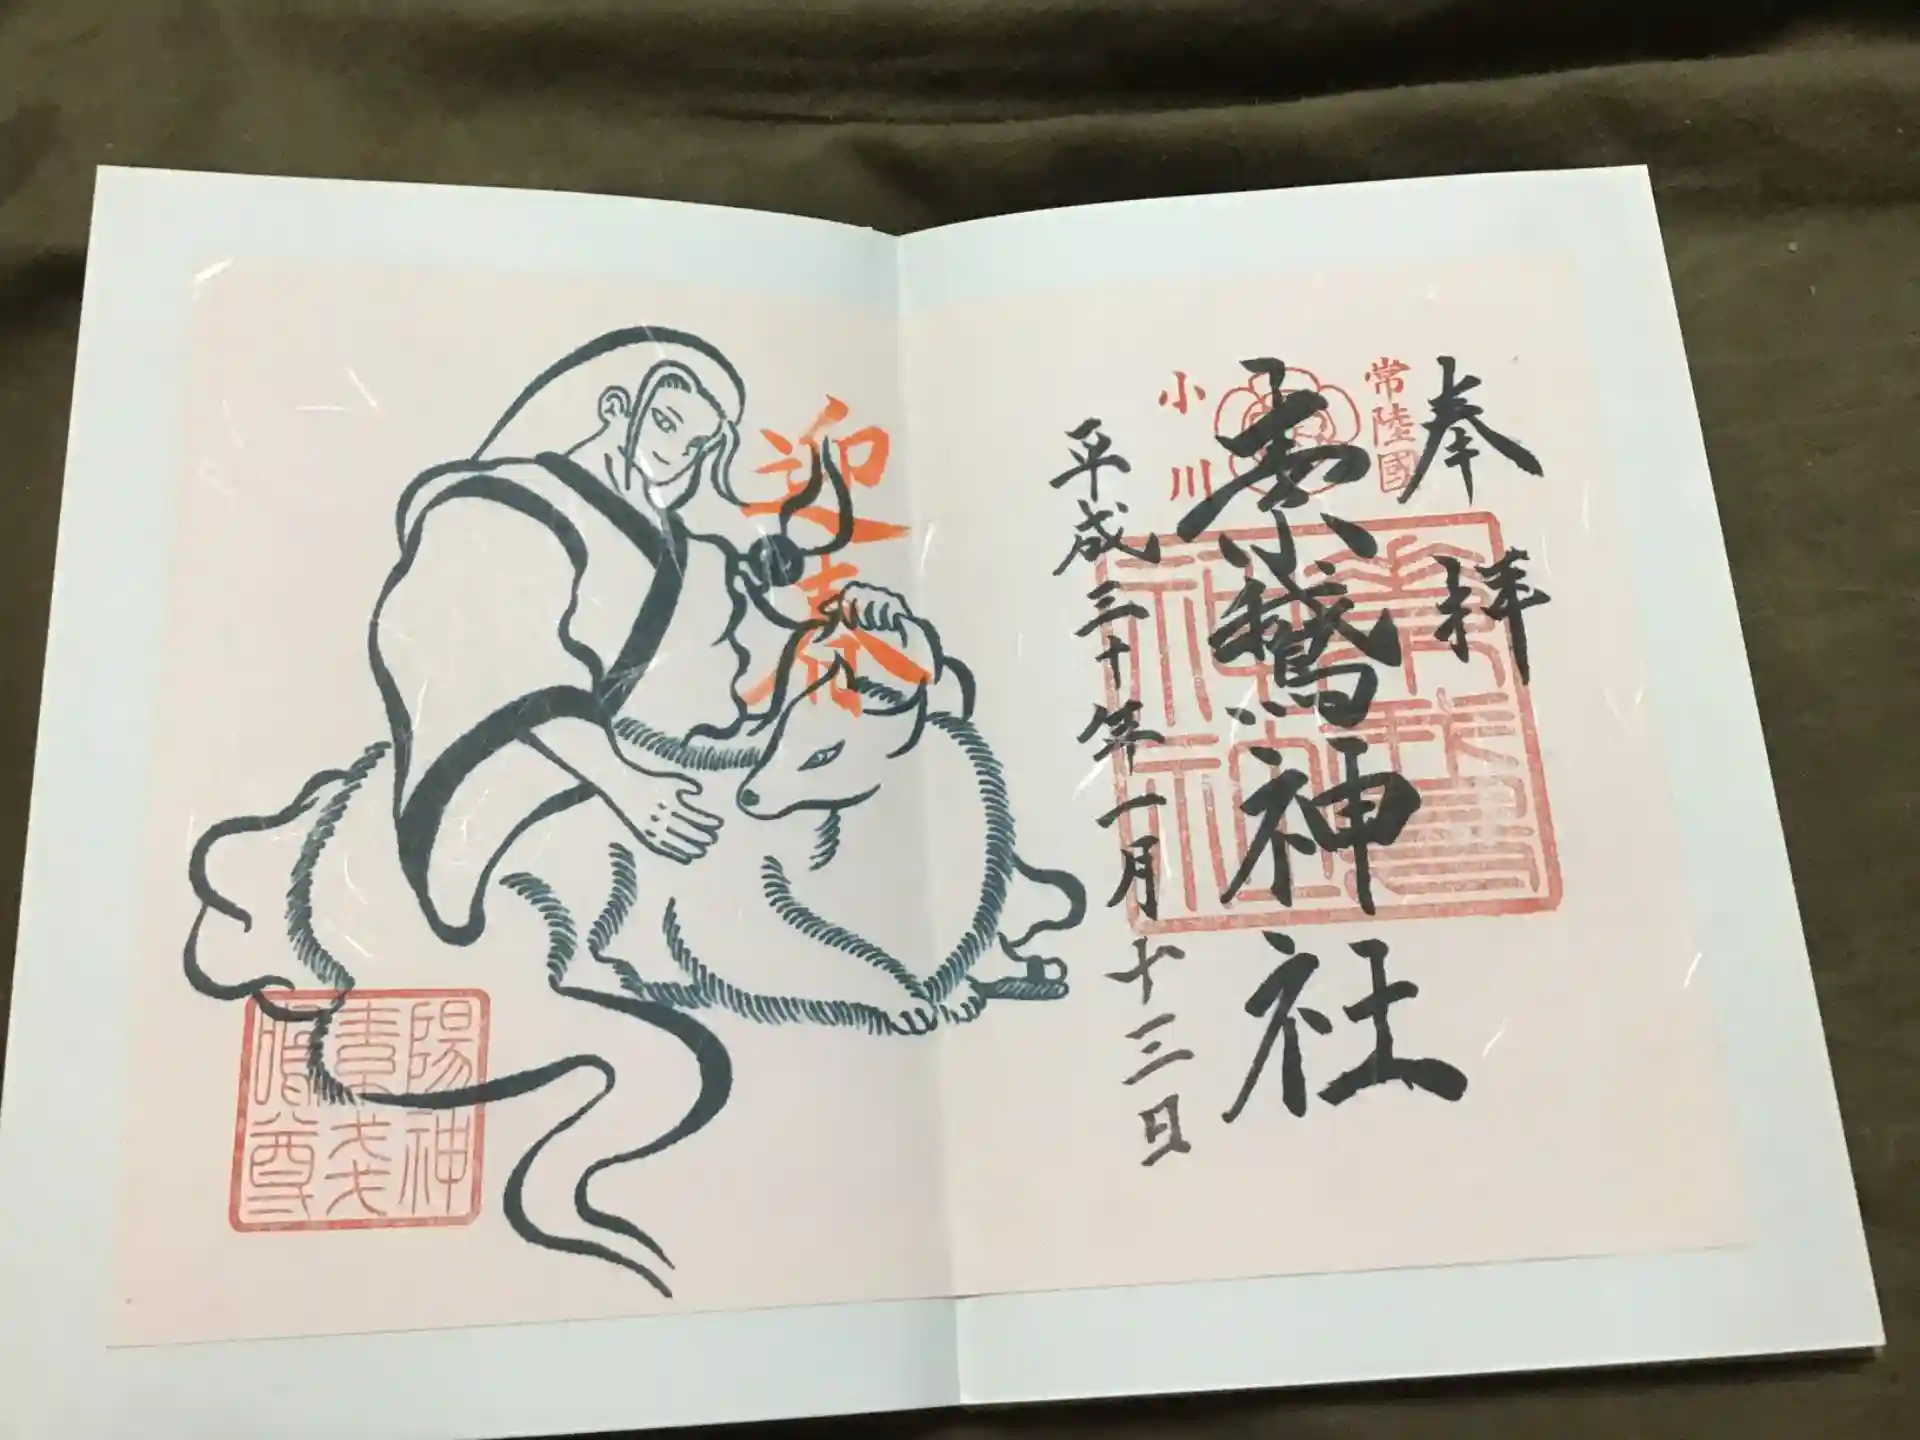 奉拝
常陸國
小川
素鵞神社
平成三十年一月十三日
迎春
陽神
素戔
嗚尊